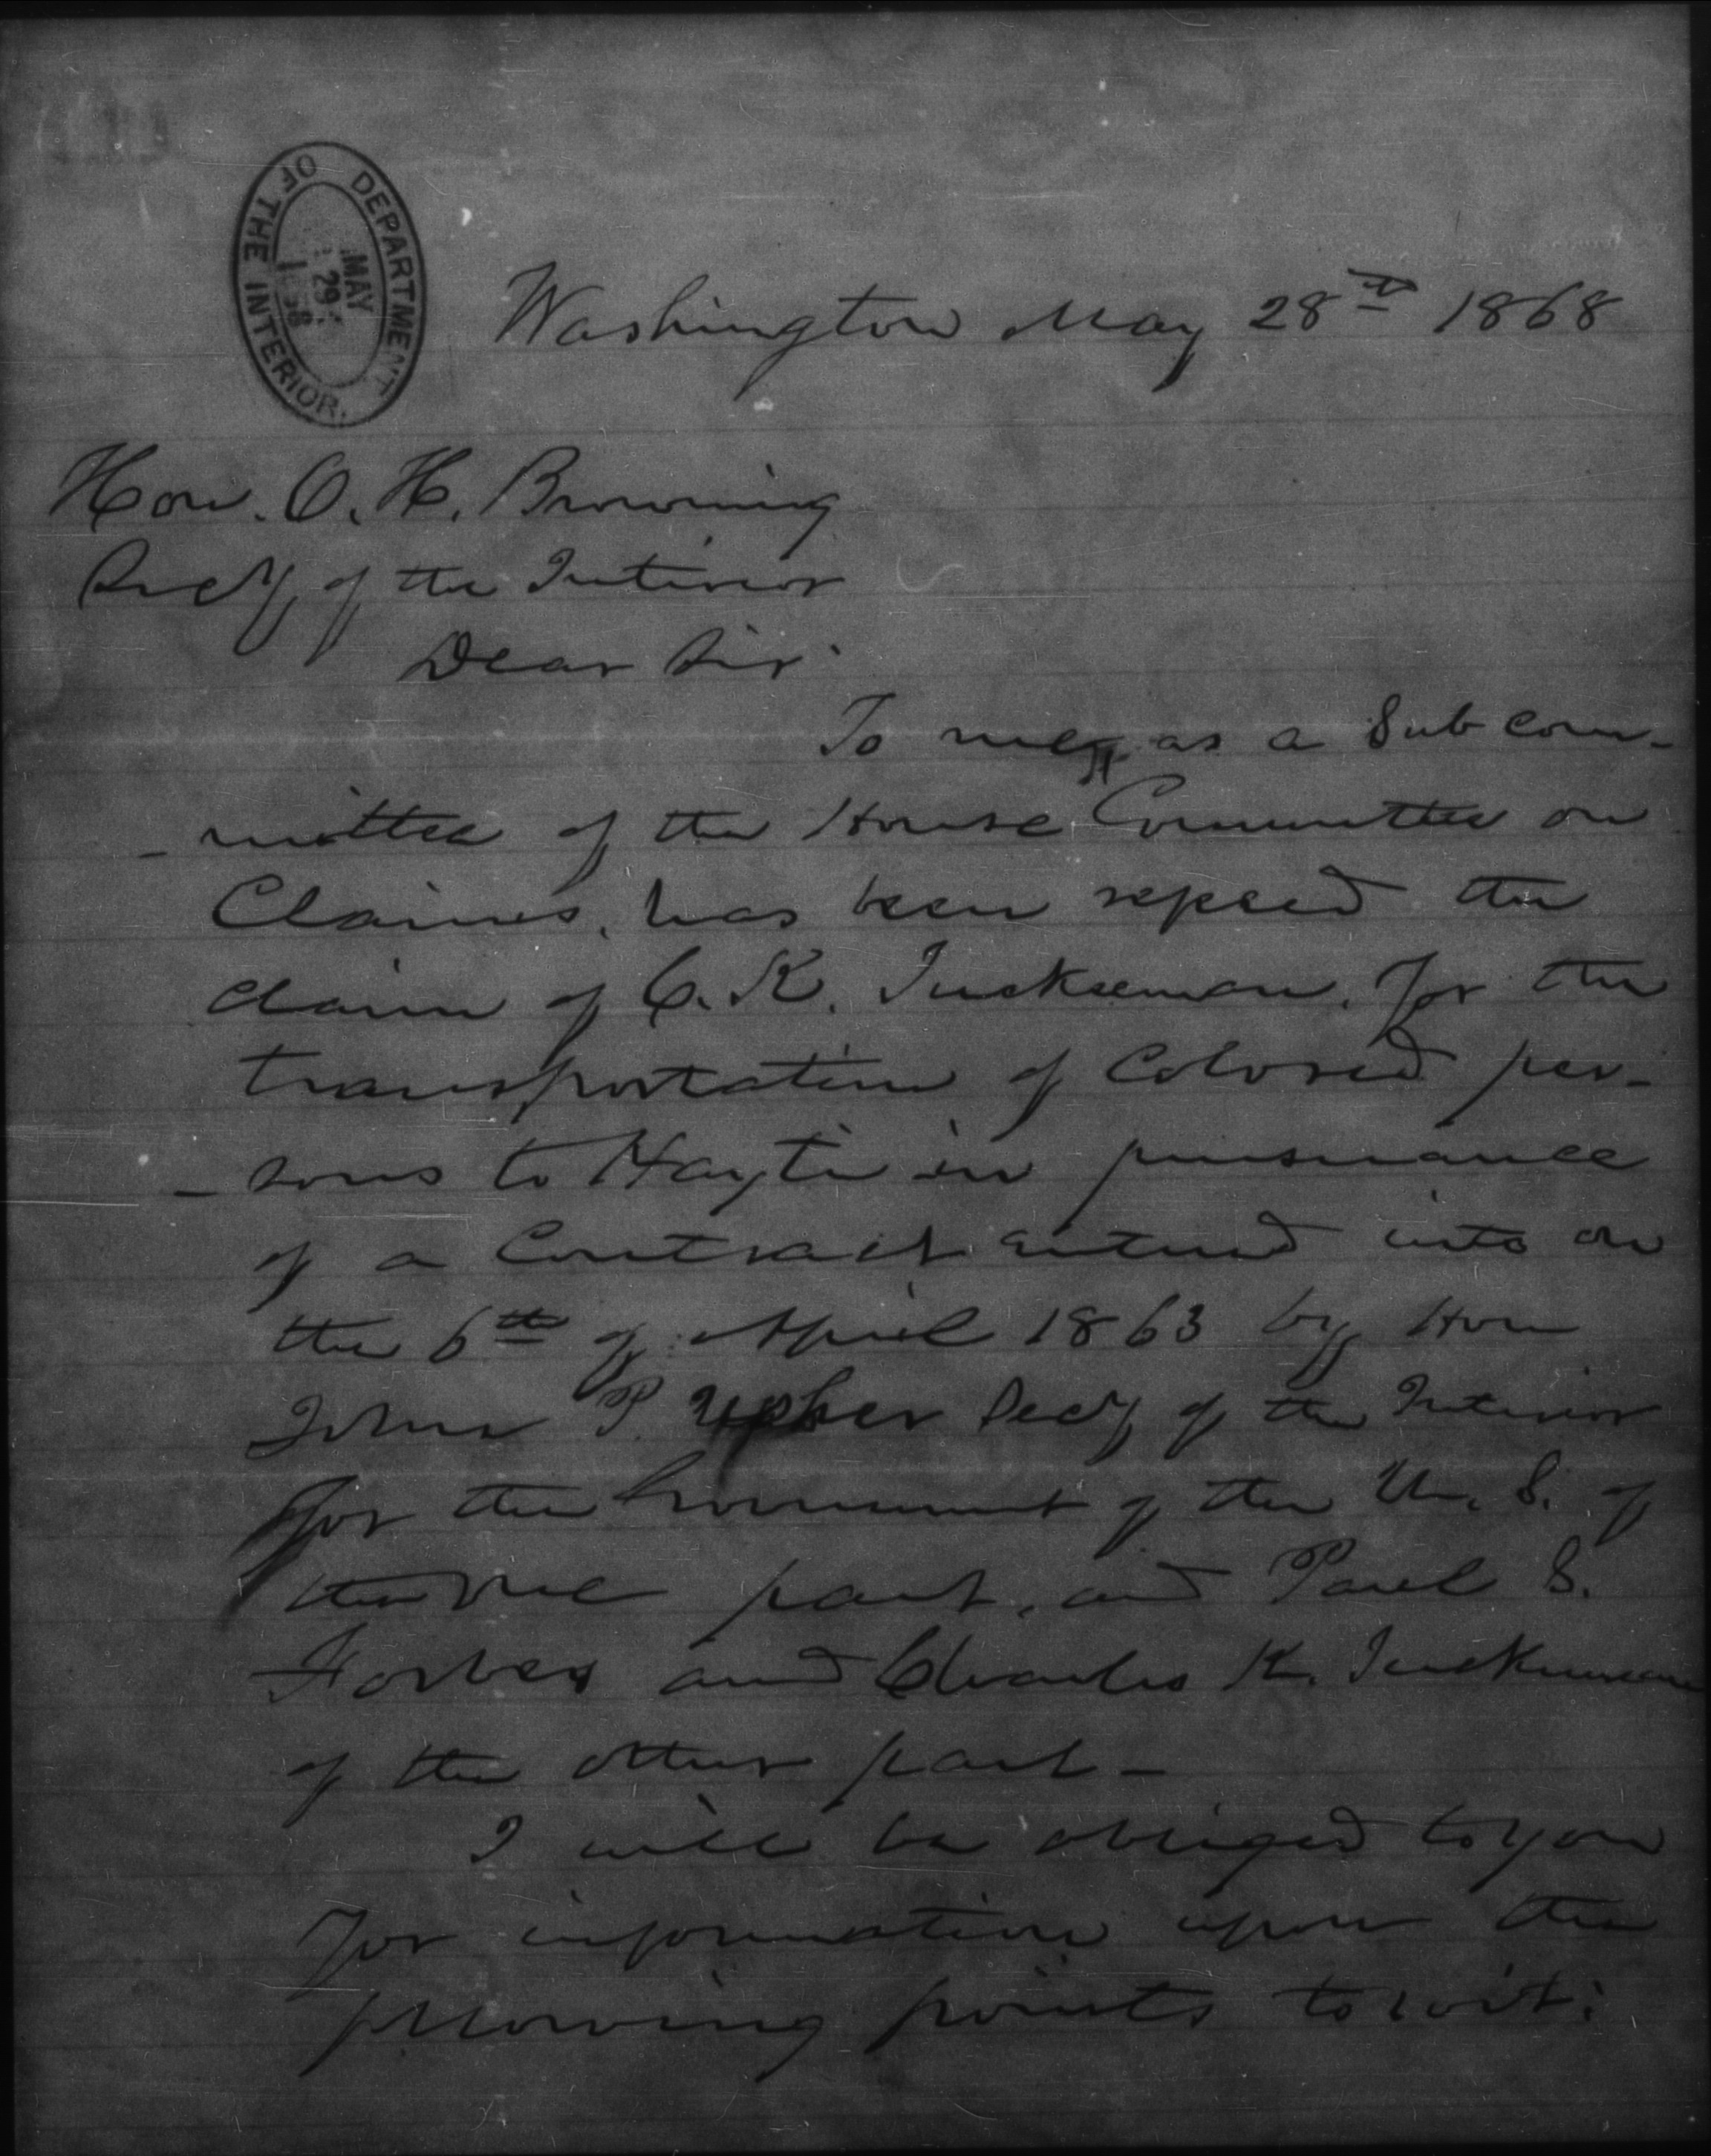 DEPARTMENT OF THE INTERIOR.
MAY
29
1868
Washington May 28th 1868
Hon. O. H. Browning
Secy of the Interior
Dear Sir
To me, as a Sub com-
-mittee of the House Committee on
Claims, has been refered the
claim of C. K. Tuckerman, for the
transportation of Colored per-
-sons to Hayti in pursuance
of a Contract entered into on
the 6th of April 1863 by Hon
John P. Usher Secy of the Interior
for the Government of the U. S. of
the one part, and Paul S.
Forbes and Charles K. Tuckerman
of the other part -
I will be obliged to you
for information upon the
following points to wit: